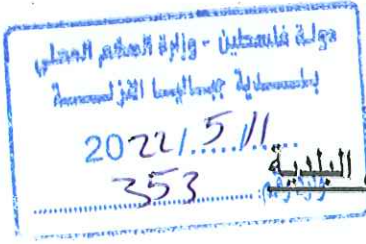 دولة فلسطين - وزارة الحكم المحلي
بلدية جباليا النزلة
2022/5/11
353
البلدية